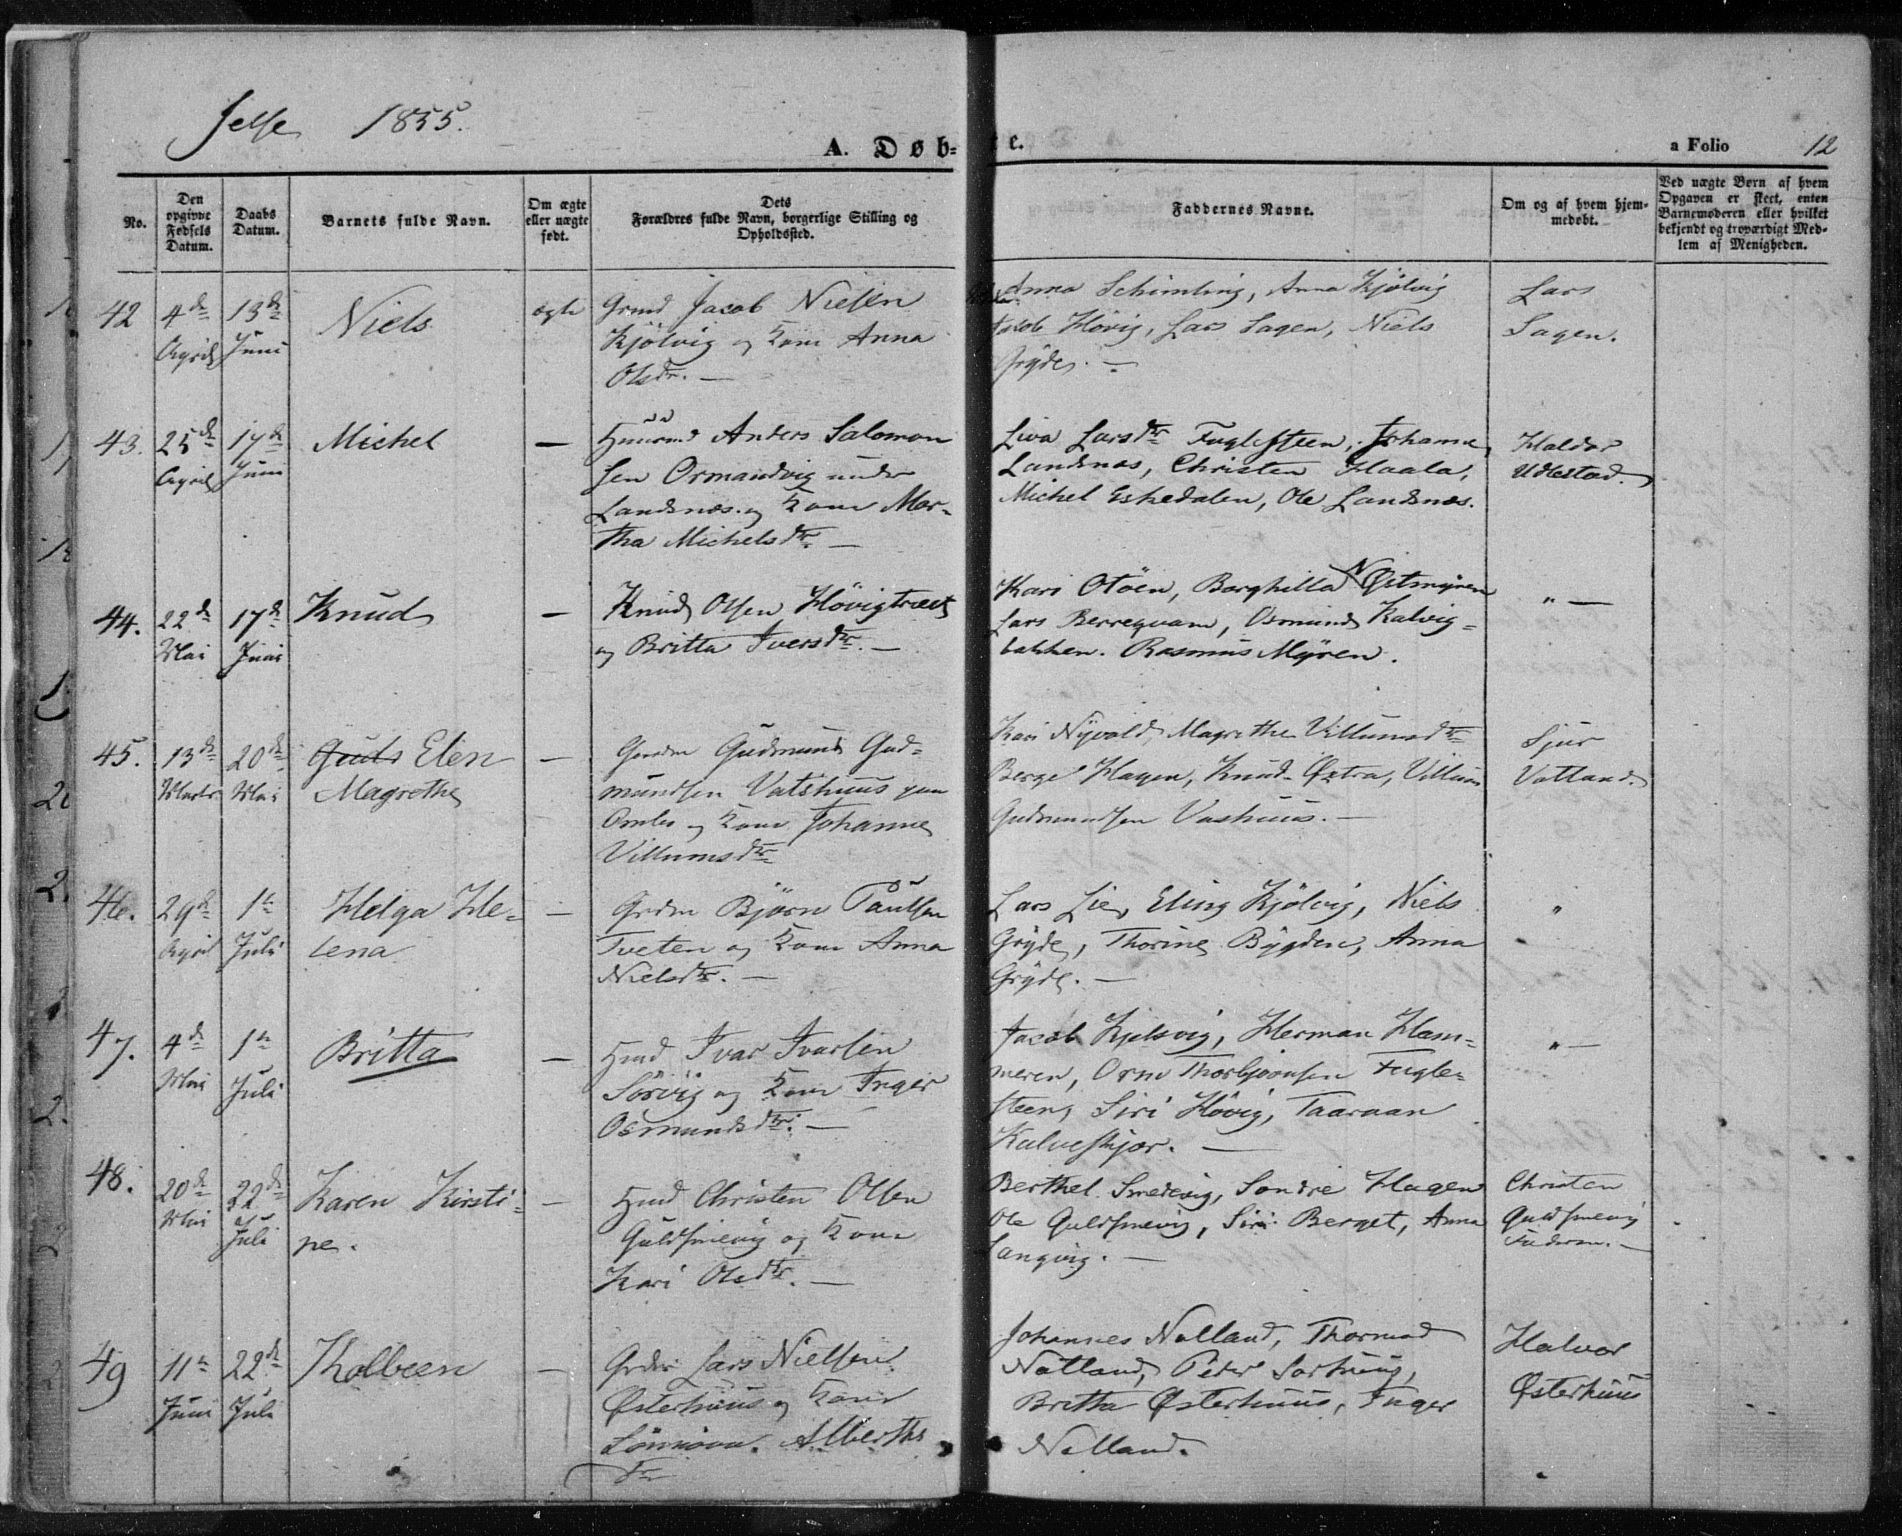 Jelse 1855.
A. Døb=
te.
a Folio 12
No.
Den opgivne Fødsels Datum.
Daabs Datum.
Barnets fulde Navn.
Om ægte eller uægte født.
Dets Forældres fulde Navn, borgerlige Stilling og Opholdssted.
Faddernes Navne.
Om og af hvem hjemmedøbt.
Ved uægte Børn af hvem Opgaven er skeet, enten Barnemoderen eller hvilket bekjendt og troværdigt Medlem af Menigheden.
42
4de April
13de Juni
Niels
ægte
Grmd Jacob Nielsen
Kjölvig og Kone Anna
Olsdr. —
Anna Schimling, Anna Kjölvig
Jacob Hövig, Lars Sagen, Niels
Gryde. —
Lars
Sagen.
43.
25de April
17de Juni
Michel
—
Huusmd Anders Salomon
sen Ormandvig under
Landsnæs og Kone Mar-
tha Michelsdtr. —
Liva Larsdtr Fuglesteen, Johanne
Landsnæs, Christen Haala,
Michel Eskedalen, Ole Landsnæs.
Haldor
Udlestad.
44.
22de Mai
17de Juni
Knud
—
Knud Olsen Hövigtræet
og Britta Iversdtr. —
Kari Otöen, Borghilla N Østmyren
Lars Berrequam, Osmund Kalvig-
bakken. Rasmus Myren.
" —
45.
13de Marts
20de Mai
Guds Elen
Magrethe
—
Grdm Gudmund Gud-
mundsen Vatshuus paa
Ombo og Kone Johanne
Villumsdtr
Kari Nyvold, Magrethe Villumsdtr
Berge Hagen, Knud Østra, Villum
Gudmundsen Vashuus. —
Sjur
Vatland.
46.
29de April
1te Juli
Helga He-
lena
—
Grdm Björn Paulsen
Tveten og Kone Anna
Nielsdtr. —
Lars Lie, Eling Kjölvig, Niels
Gryde, Thorine Bygden, Anna
Gryde. —
"
47.
4de Mai
1te Juli
Britta
—
Hmd Ivar Ivarsen
Sörvig og Kone Inger
Osmundsdtr. —
Jacob Kjelsvig, Herman Ham-
meren, Orm Thorbjörnsen Fugle-
steen, Siri Hövig, Taaraan
Kalveskjær. —
" —
48.
20de Mai
22de Juli
Karen Kirsti-
ne.
—
Hmd Christen Olsen
Guldsmevig og Kone
Kari Olsdtr. —
Berthel Smedevig, Söndre Hagen
Ole Guldsmevig, Siri Berget, Anna
Langvig. —
Christen
Guldsmevig
Faderen. —
49
11te Juni
22de Juli
Kolbeen
—
Grdm Lars Nielsen
Østerhuus og Kone
Sönnöva Alberths
dtr
Johannes Nalland, Thormod
Natland, Peder Sørhuus,
Britta Østerhuus, Inger
Nalland.
Halvor
Østerhuus